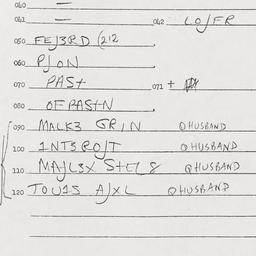 040 —
041 — 042 LOJFR
050 FEJ3RD (212
060 PJON
070 PAST 071 +
080 OFPASTN
090 MALK3 GRIN @HUSBAND
100 1NTS ROJT @HUSBAND
110 MAJL3X STEL8 @HUSBAND
120 TOU1S AJXL @HUSBAND